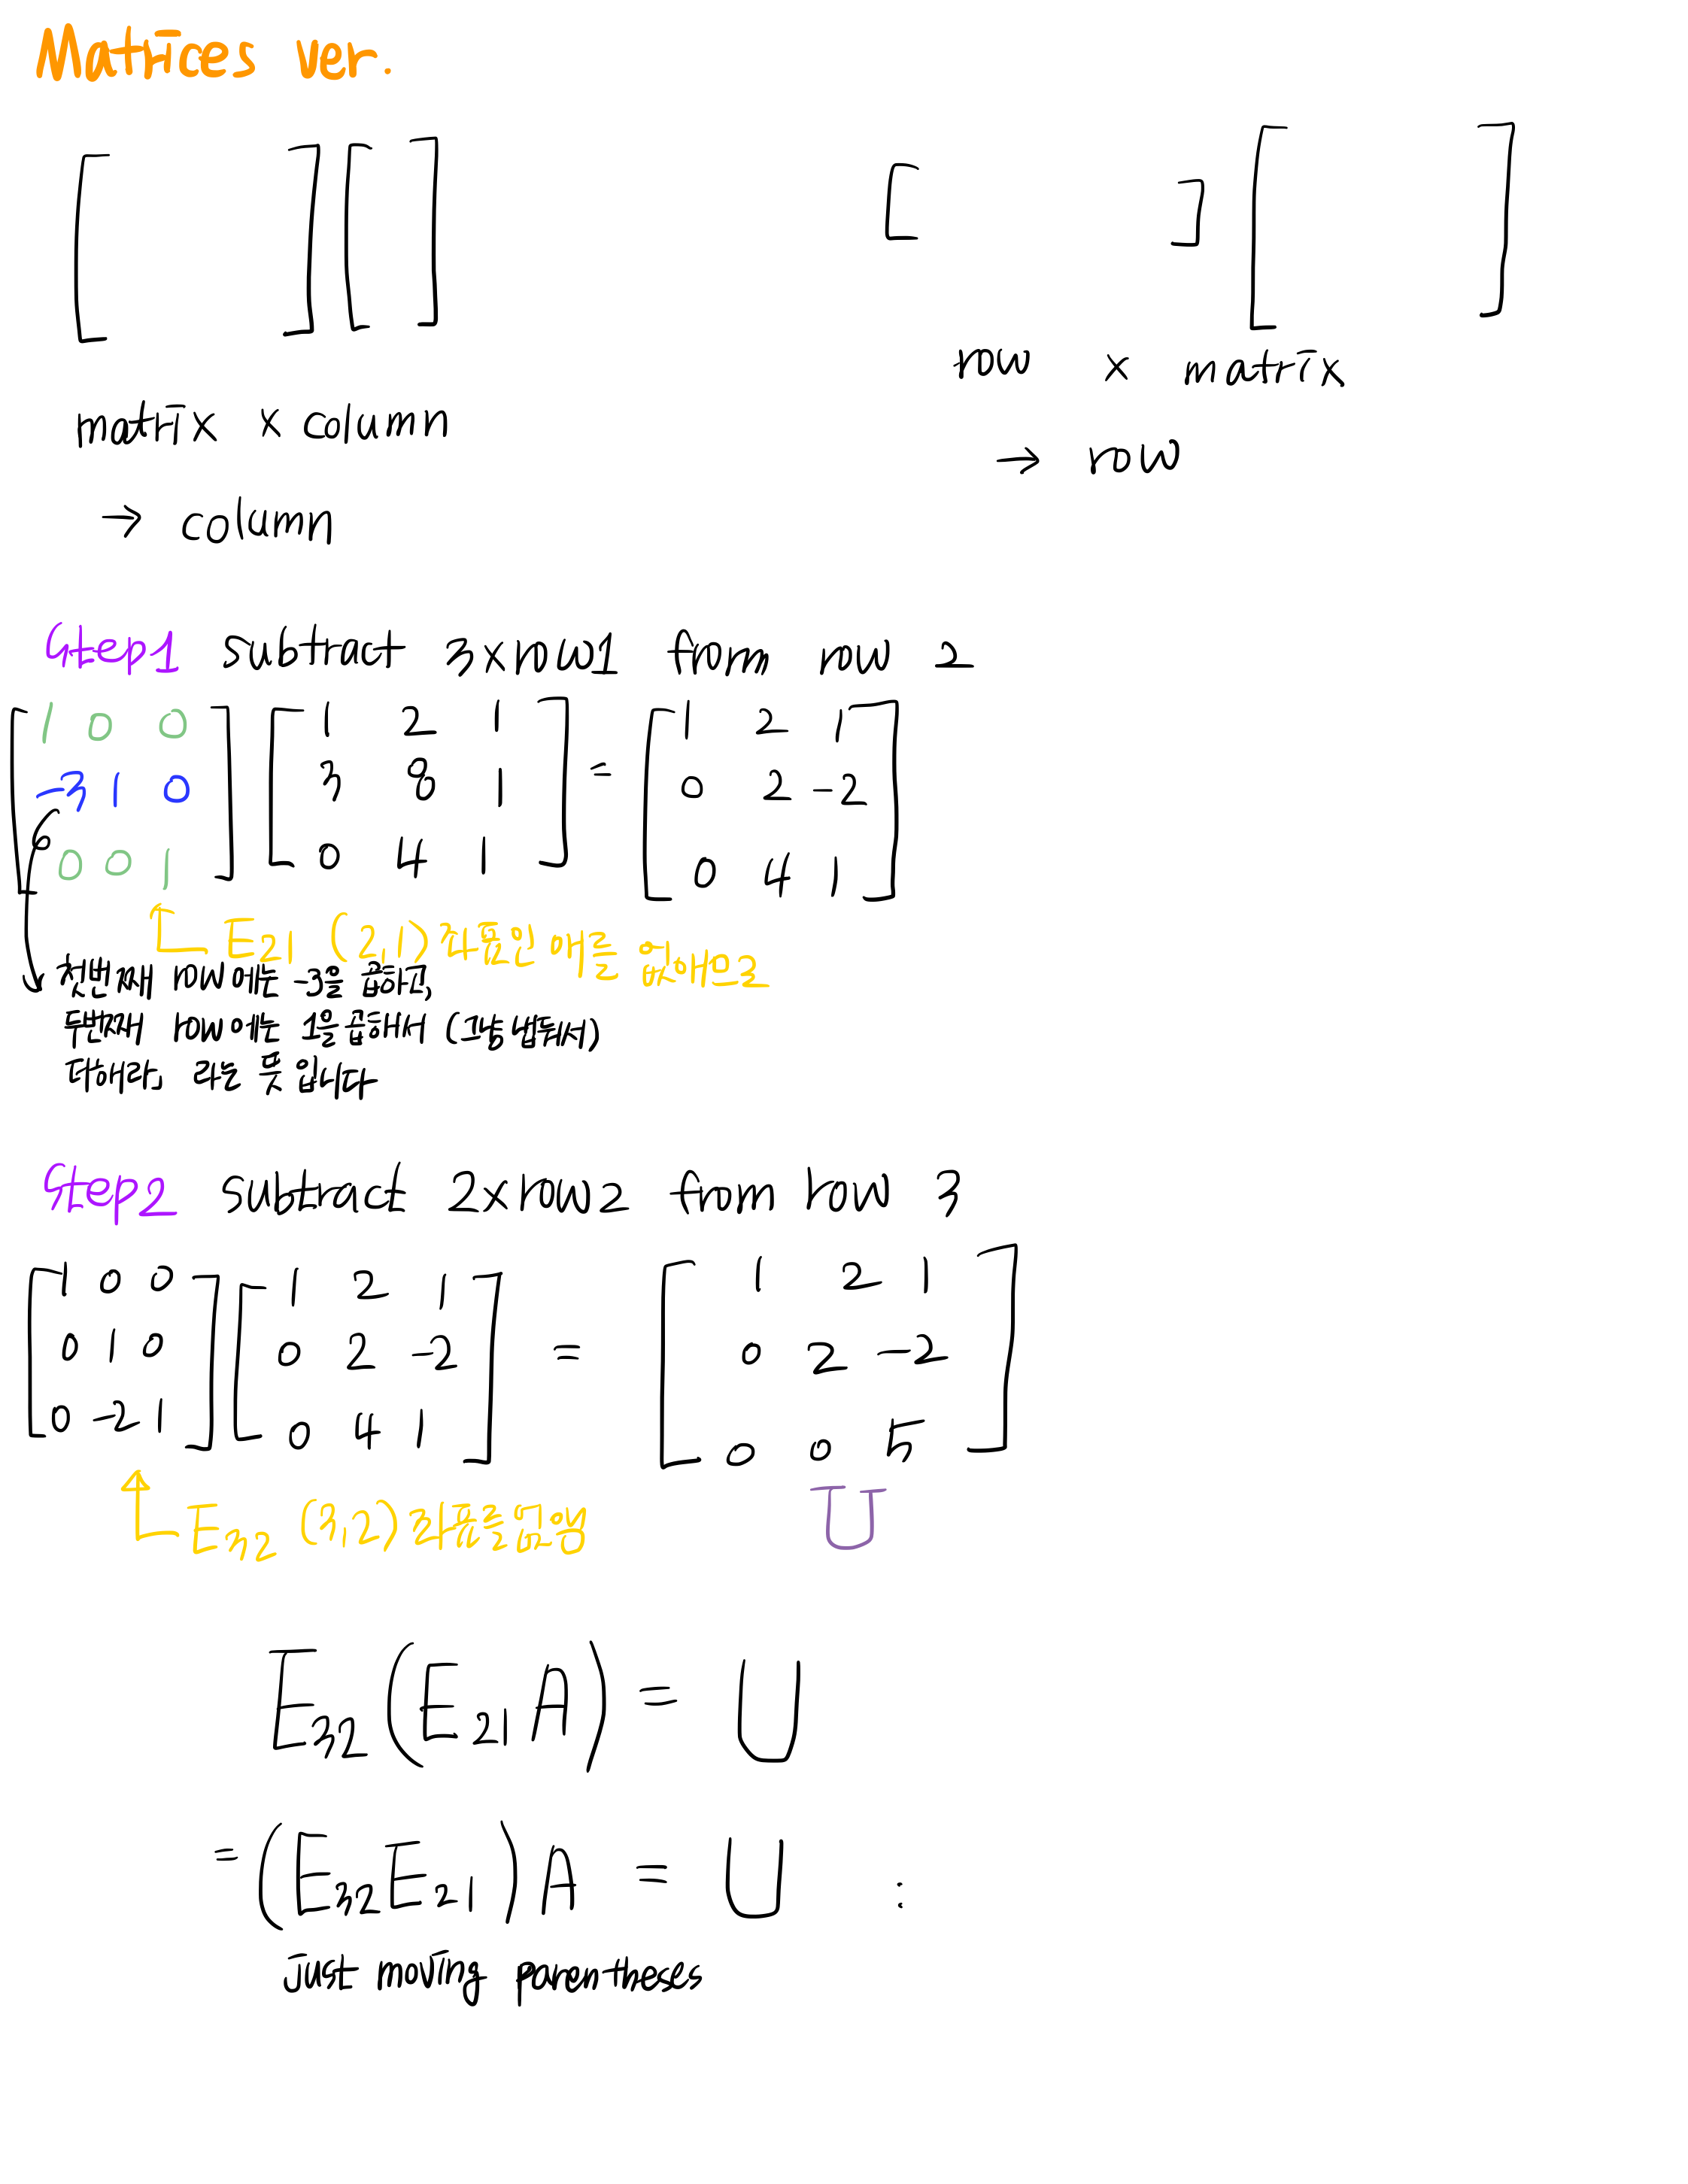 Matrices ver.
matrix × column
→ column
row × matrix
→ row
Step1 subtract 3×row1 from row 2
[1 0 0] [1 2 1] = [1 2 1]
[-3 1 0] [3 8 1] [0 2 -2]
[0 0 1] [0 4 1] [0 4 1]
E21 (2,1)자폭인 애를 없애므로
첫번째 row에는 -3을 곱하고,
두번째 row에는 1을곱해서 (그냥 냅둬서)
더해라」 라는 뜻입니다
Step2 subtract 2×row2 from row 3
[1 0 0] [1 2 1] = [1 2 1]
[0 1 0] [0 2 -2] [0 2 -2]
[0 -2 1] [0 4 1] [0 0 5]
E32 (3,2)
U
E32(E21A) = U
= (E32E21)A = U :
just moving parentheses